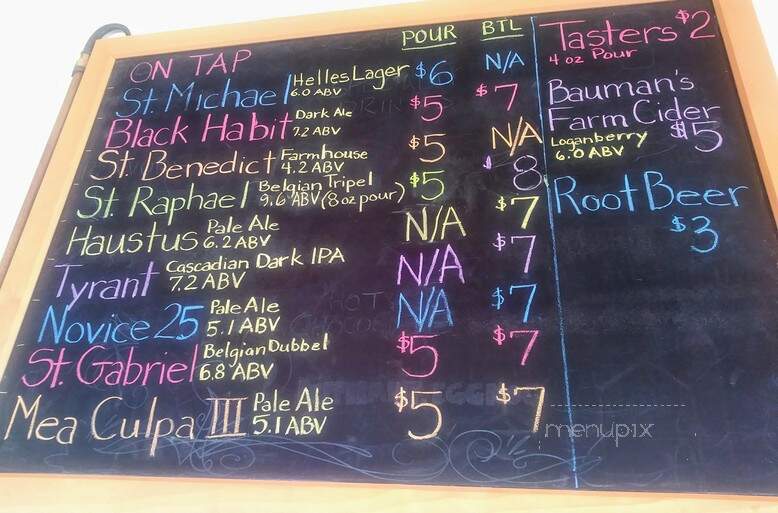 ON TAP POUR BTL
St. Michael Helles Lager 6.0 ABV $6 N/A
Black Habit Dark Ale 7.2 ABV $5 $7
St. Benedict Farmhouse 4.2 ABV $5 N/A
St. Raphael Belgian Tripel 9.6 ABV (8 oz pour) $5 8
Haustus Pale Ale 6.2 ABV N/A $7
Tyrant Cascadian Dark IPA 7.2 ABV N/A $7
Novice 25 Pale Ale 5.1 ABV N/A $7
St. Gabriel Belgian Dubbel 6.8 ABV $5 $7
Mea Culpa III Pale Ale 5.1 ABV $5 $7
Tasters $2
4 oz Pour
Bauman's
Farm Cider
Loganberry $5
6.0 ABV
Root Beer
$3
menupix